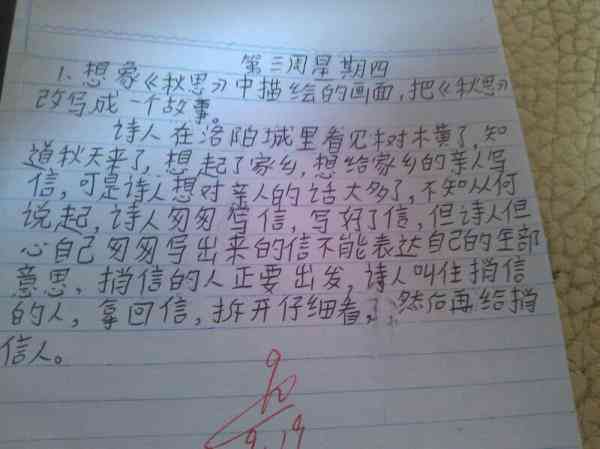 第三周星期四
1、想象《秋思》中描绘的画面,把《秋思》
改写成一个故事。
诗人在洛阳城里看见树木黄了,知
道秋天来了,想起了家乡,想给家乡的亲人写
信,可是诗人想对亲人的话太多了,不知从何
说起,诗人匆匆写信,写好了信,但诗人但
心自己匆匆写出来的信不能表达自己的全部
意思、捎信的人正要出发,诗人叫住捎信
的人,拿回信,拆开仔细看,然后再给捎
信人。
9.19